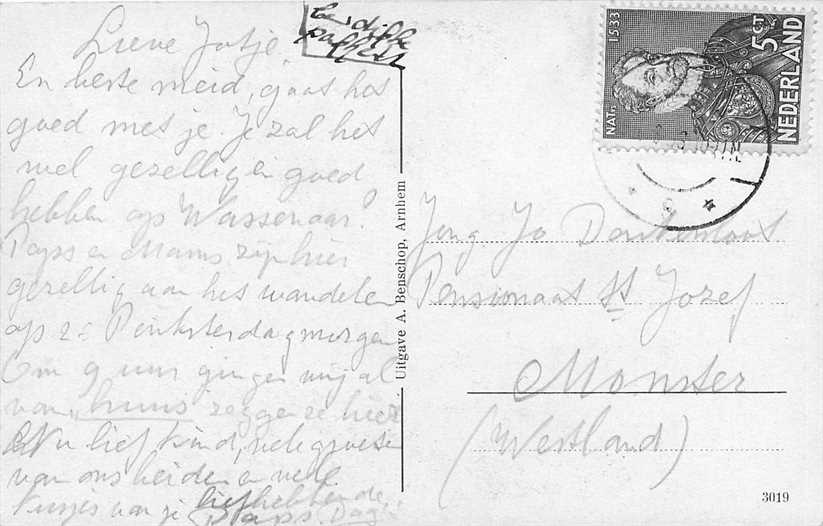 Lieve Jotje,
En beste meid, gaat het
goed met je. Je zal het
wel gezellig en goed
hebben op Wassenaar?
Paps en Mams zijn hier
gezellig aan het wandelen
op 2e Pinksterdagmorgen
Om 9 uur gingen wij al
van "huus" zeggen ze hier
Nu lief kind, vele groeten
van ons beiden en vele
kusjes van je liefhebbende
Paps. Dag
Uitgave A. Benschop, Arnhem
1533
NAT.
5 CT
NEDERLAND
Jong Jo
Pensionaat St Jozef
Monster
(Westland)
3019